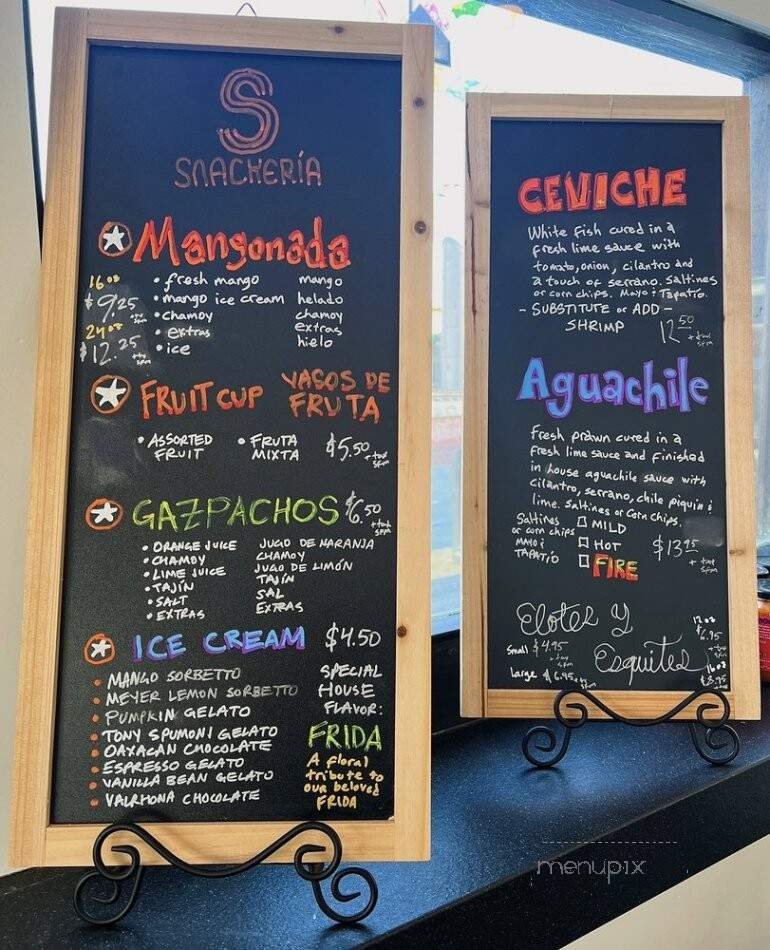 S
SNACKERÍA
Mangonada
16oz
• fresh mango mango
$9.25 • mango ice cream helado
• chamoy chamoy
24oz • extras extras
$12.25 • ice hielo
FRUIT CUP VASOS DE
FRUTA
• ASSORTED • FRUTA $5.50
FRUIT MIXTA
GAZPACHOS $6.50
• ORANGE JUICE JUGO DE NARANJA
• CHAMOY CHAMOY
• LIME JUICE JUGO DE LIMÓN
• TAJÍN TAJÍN
• SALT SAL
• EXTRAS EXTRAS
ICE CREAM $4.50
• MANGO SORBETTO
• MEYER LEMON SORBETTO
• PUMPKIN GELATO
• TONY SPUMONI GELATO
• OAXACAN CHOCOLATE
• ESPRESSO GELATO
• VANILLA BEAN GELATO
• VALRHONA CHOCOLATE
SPECIAL
HOUSE
FLAVOR:
FRIDA
A floral
tribute to
our beloved
FRIDA
CEVICHE
White fish cured in a
fresh lime sauce with
tomato, onion, cilantro and
a touch of serrano. Saltines
or corn chips. Mayo & Tapatío.
- SUBSTITUTE or ADD -
SHRIMP 12 50
Aguachile
Fresh prawn cured in a
fresh lime sauce and finished
in house aguachile sauce with
cilantro, serrano, chile piquin &
lime. Saltines or Corn Chips.
Saltines
or corn chips
MAYO &
TAPATÍO
☐ MILD
☐ HOT
☐ FIRE
$13 95
Elotes y
Esquites
Small $4.95
large $6.95
12 oz
$6.95
16 oz
$8.95
menupix